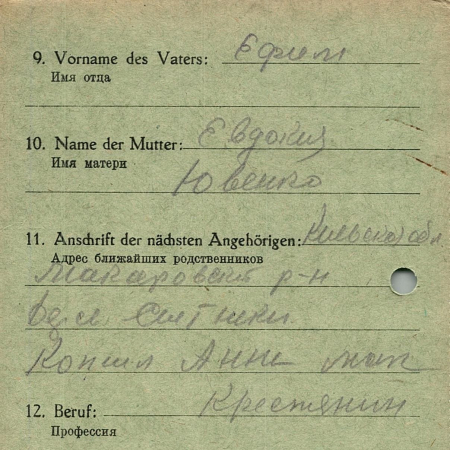 9. Vorname des Vaters: Ефим
Имя отца
10. Name der Mutter: Евдокия
Имя матери
Ювенко
11. Anschrift der nächsten Angehörigen: Киевская обл
Адрес ближайших родственников
Макаровский р-н
Ситники
Копил Анне
12. Beruf: Крестянин
Профессия